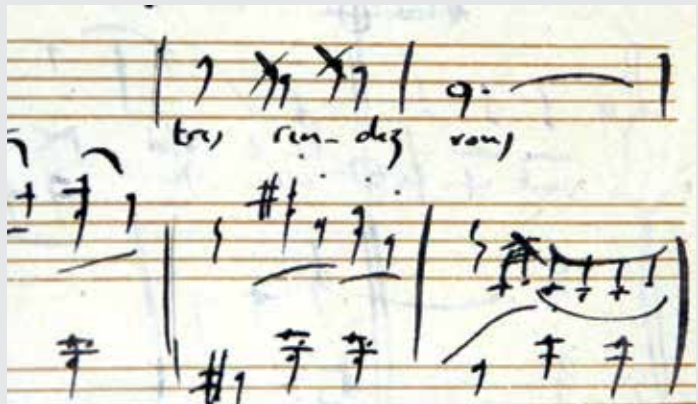 tres ren-dez vous